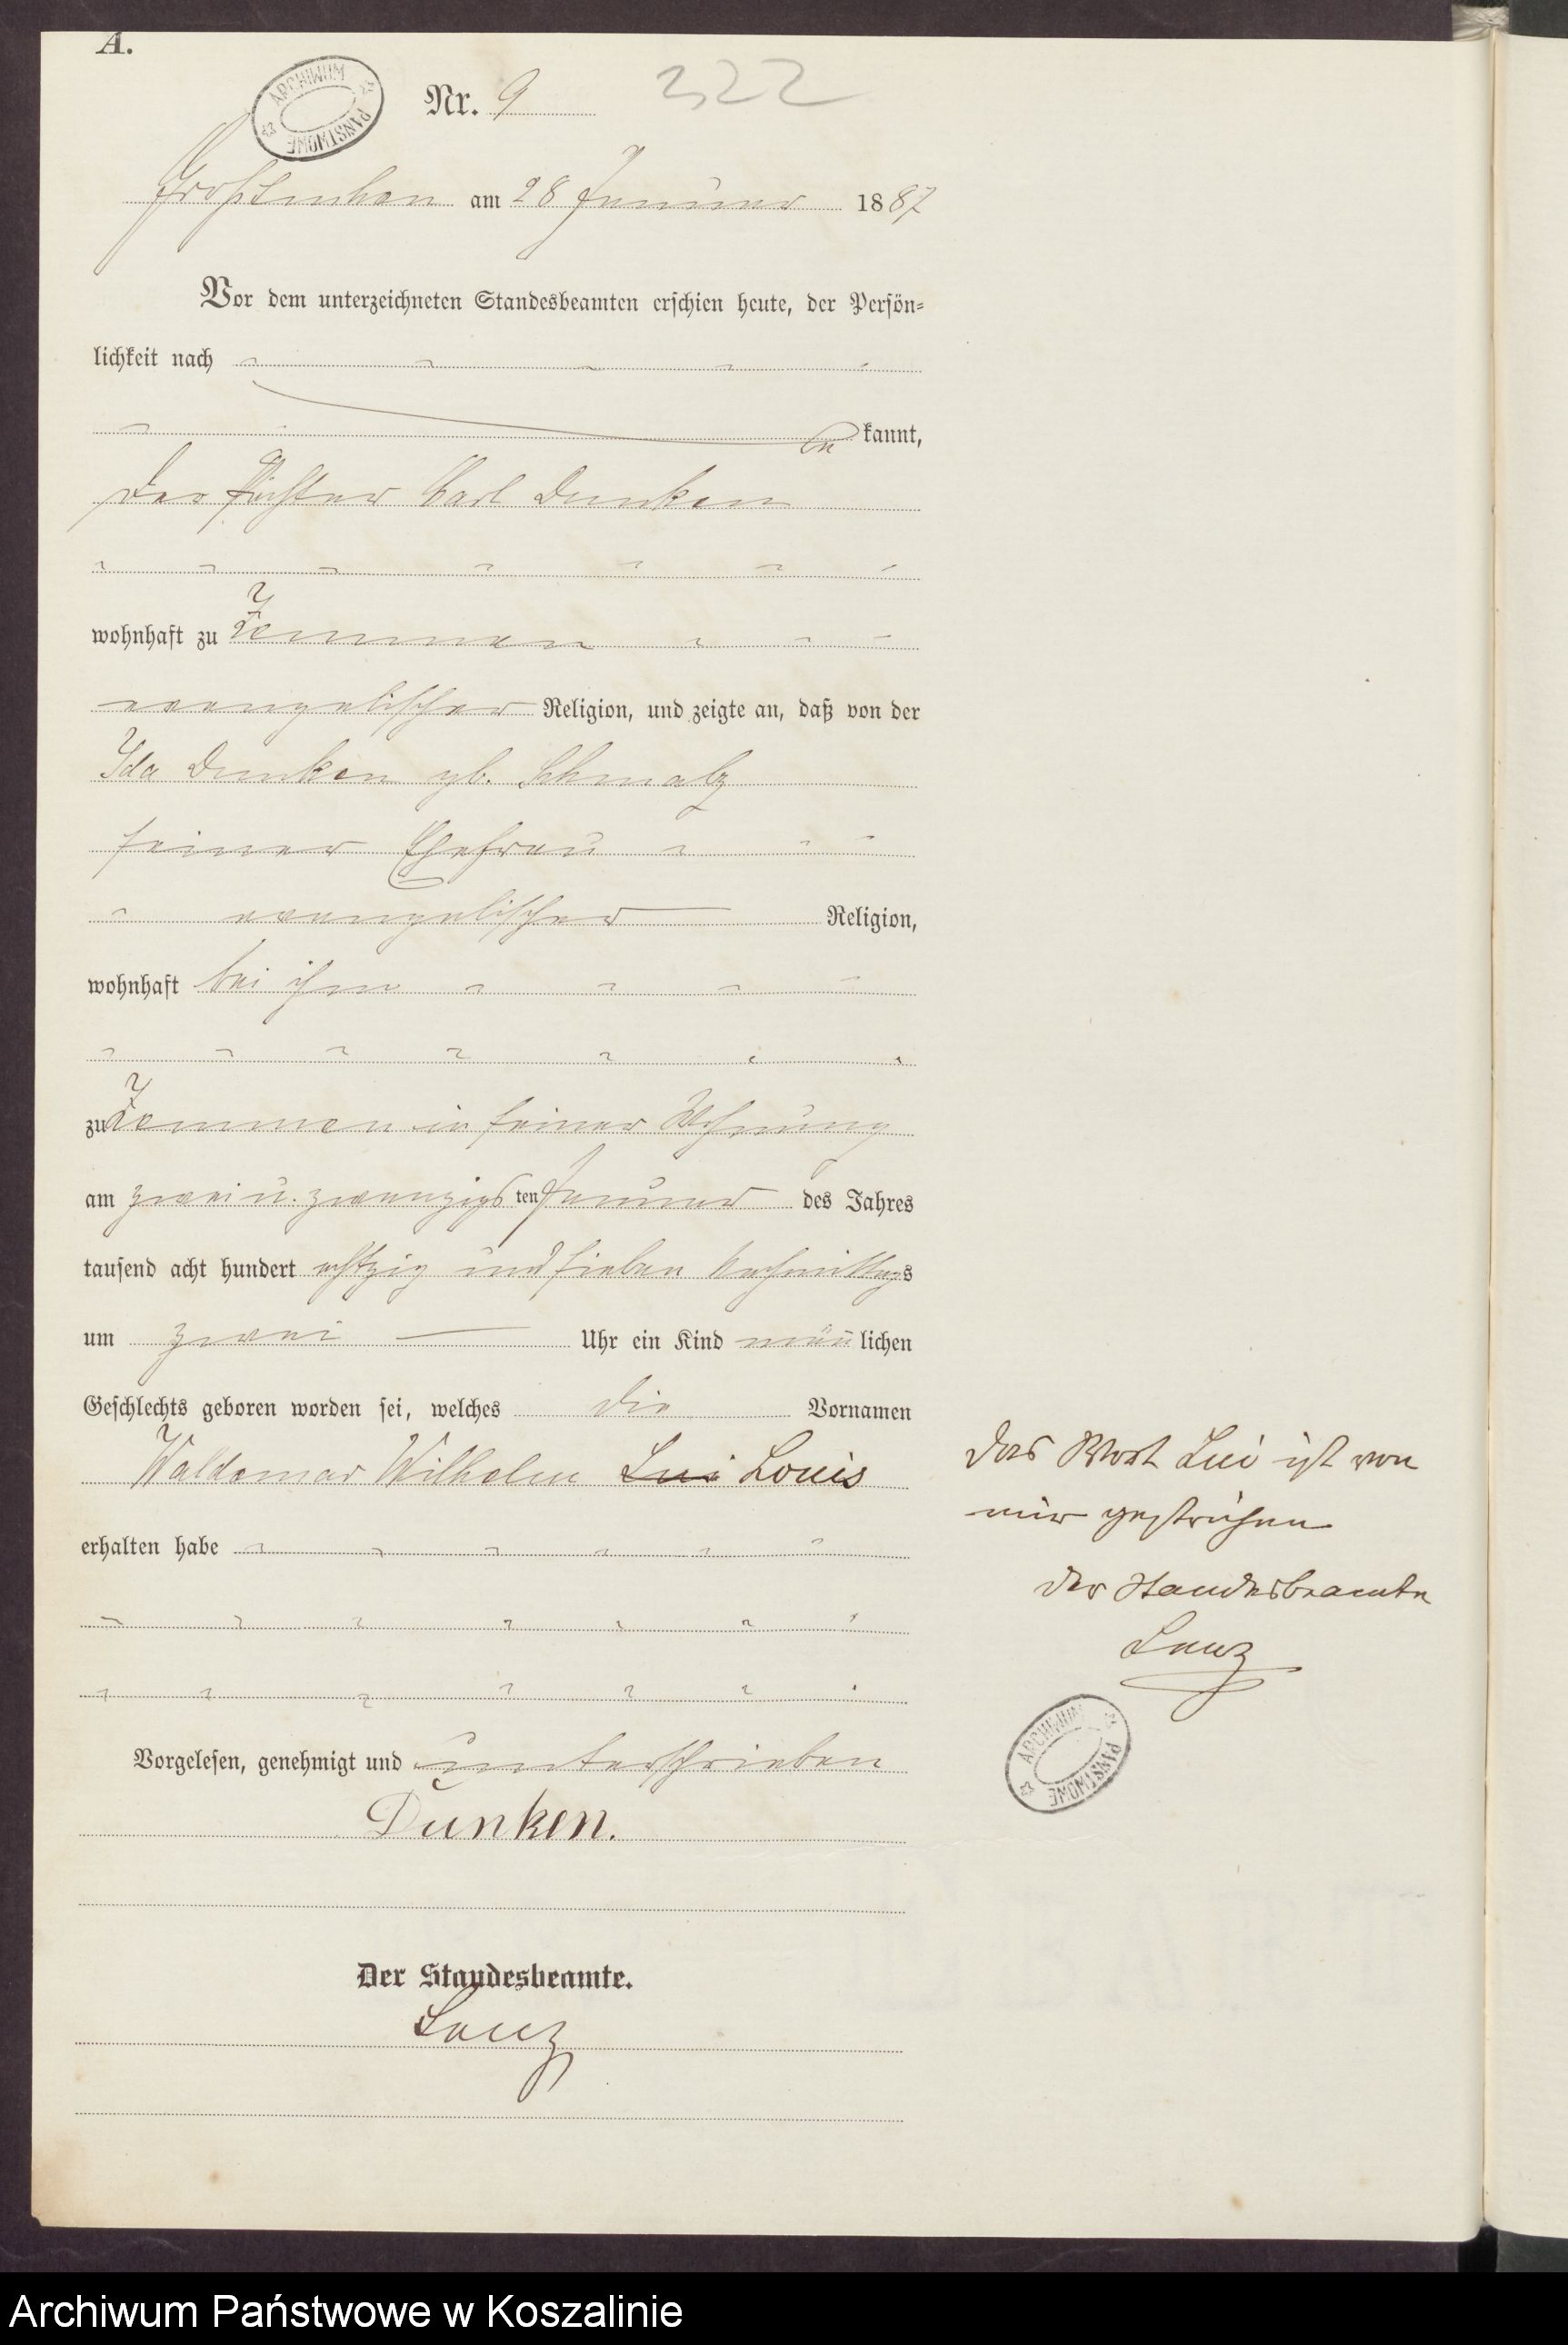 A.
ARCHIWUM PAŃSTWOWE
Nr. 9
322
Großtuchen am 28 Januar 1887
Vor dem unterzeichneten Standesbeamten erschien heute, der Persön=
lichkeit nach
be kannt,
der Pächter Carl Dunken
wohnhaft zu Zemmen
evangelischer Religion, und zeigte an, daß von der
Ida Dunken gb. Schmalz
seiner Ehefrau
evangelischer Religion,
wohnhaft bei ihm
zu Zemmen in seiner Wohnung
am zwei u. zwanzigs ten Januar des Jahres
tausend acht hundert achtzig und sieben Nachmittags
um zwei Uhr ein Kind männlichen
Geschlechts geboren worden sei, welches die Vornamen
Waldemar Wilhelm Lui Louis
erhalten habe
Das Wort Lui ist von
mir gestrichen
Der Standesbeamte
Lenz
ARCHIWUM PAŃSTWOWE
Vorgelesen, genehmigt und unterschrieben
Dunken.
Der Standesbeamte.
Lenz
Archiwum Państwowe w Koszalinie